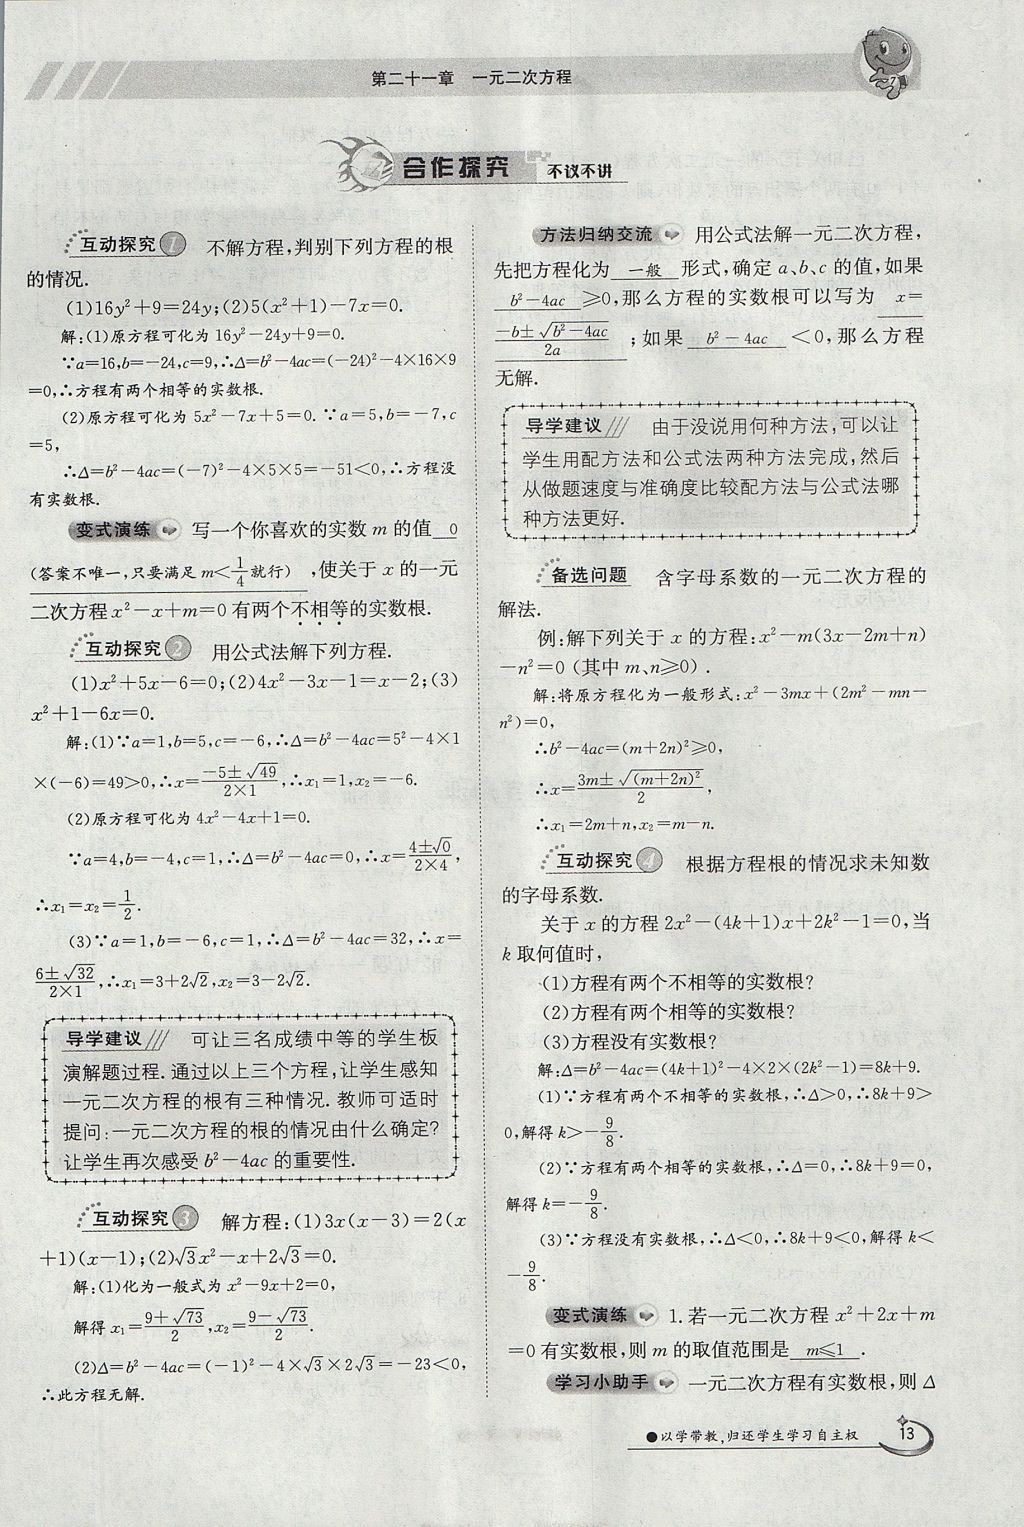 第二十一章　一元二次方程
合作探究 不议不讲
互动探究1 不解方程,判别下列方程的根
的情况.
(1)16y²+9=24y;(2)5(x²+1)-7x=0.
解:(1)原方程可化为16y²-24y+9=0.
∵a=16,b=-24,c=9,∴Δ=b²-4ac=(-24)²-4×16×9
=0,∴方程有两个相等的实数根.
(2)原方程可化为5x²-7x+5=0.∵a=5,b=-7,c
=5,
∴Δ=b²-4ac=(-7)²-4×5×5=-51<0,∴方程没
有实数根.
变式演练 写一个你喜欢的实数m的值 0
(答案不唯一,只要满足m<1/4就行) ,使关于x的一元
二次方程x²-x+m=0有两个不相等的实数根.
互动探究2 用公式法解下列方程.
(1)x²+5x-6=0;(2)4x²-3x-1=x-2;(3)
x²+1-6x=0.
解:(1)∵a=1,b=5,c=-6,∴Δ=b²-4ac=5²-4×1
×(-6)=49>0,∴x=(-5±√49)/(2×1),∴x₁=1,x₂=-6.
(2)原方程可化为4x²-4x+1=0.
∵a=4,b=-4,c=1,∴Δ=b²-4ac=0,∴x=(4±√0)/(2×4),
∴x₁=x₂=1/2.
(3)∵a=1,b=-6,c=1,∴Δ=b²-4ac=32,∴x=
(6±√32)/(2×1),∴x₁=3+2√2,x₂=3-2√2.
导学建议 可让三名成绩中等的学生板
演解题过程.通过以上三个方程,让学生感知
一元二次方程的根有三种情况.教师可适时
提问:一元二次方程的根的情况由什么确定?
让学生再次感受b²-4ac的重要性.
互动探究3 解方程:(1)3x(x-3)=2(x
+1)(x-1);(2)√3x²-x+2√3=0.
解:(1)化为一般式为x²-9x+2=0,
解得x₁=(9+√73)/2,x₂=(9-√73)/2.
(2)Δ=b²-4ac=(-1)²-4×√3×2√3=-23<0,
∴此方程无解.
方法归纳交流 用公式法解一元二次方程,
先把方程化为 一般 形式,确定a、b、c的值,如果
b²-4ac ≥0,那么方程的实数根可以写为 x=
(-b±√(b²-4ac))/2a ;如果 b²-4ac <0,那么方程
无解.
导学建议 由于没说用何种方法,可以让
学生用配方法和公式法两种方法完成,然后
从做题速度与准确度比较配方法与公式法哪
种方法更好.
备选问题 含字母系数的一元二次方程的
解法.
例:解下列关于x的方程:x²-m(3x-2m+n)
-n²=0(其中m、n≥0).
解:将原方程化为一般形式:x²-3mx+(2m²-mn-
n²)=0,
∴b²-4ac=(m+2n)²≥0,
∴x=(3m±√((m+2n)²))/2,
∴x₁=2m+n,x₂=m-n.
互动探究4 根据方程根的情况求未知数
的字母系数.
关于x的方程2x²-(4k+1)x+2k²-1=0,当
k取何值时,
(1)方程有两个不相等的实数根?
(2)方程有两个相等的实数根?
(3)方程没有实数根?
解:Δ=b²-4ac=(4k+1)²-4×2×(2k²-1)=8k+9.
(1)∵方程有两个不相等的实数根,∴Δ>0,∴8k+9>
0,解得k>-9/8.
(2)∵方程有两个相等的实数根,∴Δ=0,∴8k+9=0,
解得k=-9/8.
(3)∵方程没有实数根,∴Δ<0,∴8k+9<0,解得k<
-9/8.
变式演练 1.若一元二次方程x²+2x+m
=0有实数根,则m的取值范围是 m≤1 .
学习小助手 一元二次方程有实数根,则Δ
●以学带教,归还学生学习自主权
13